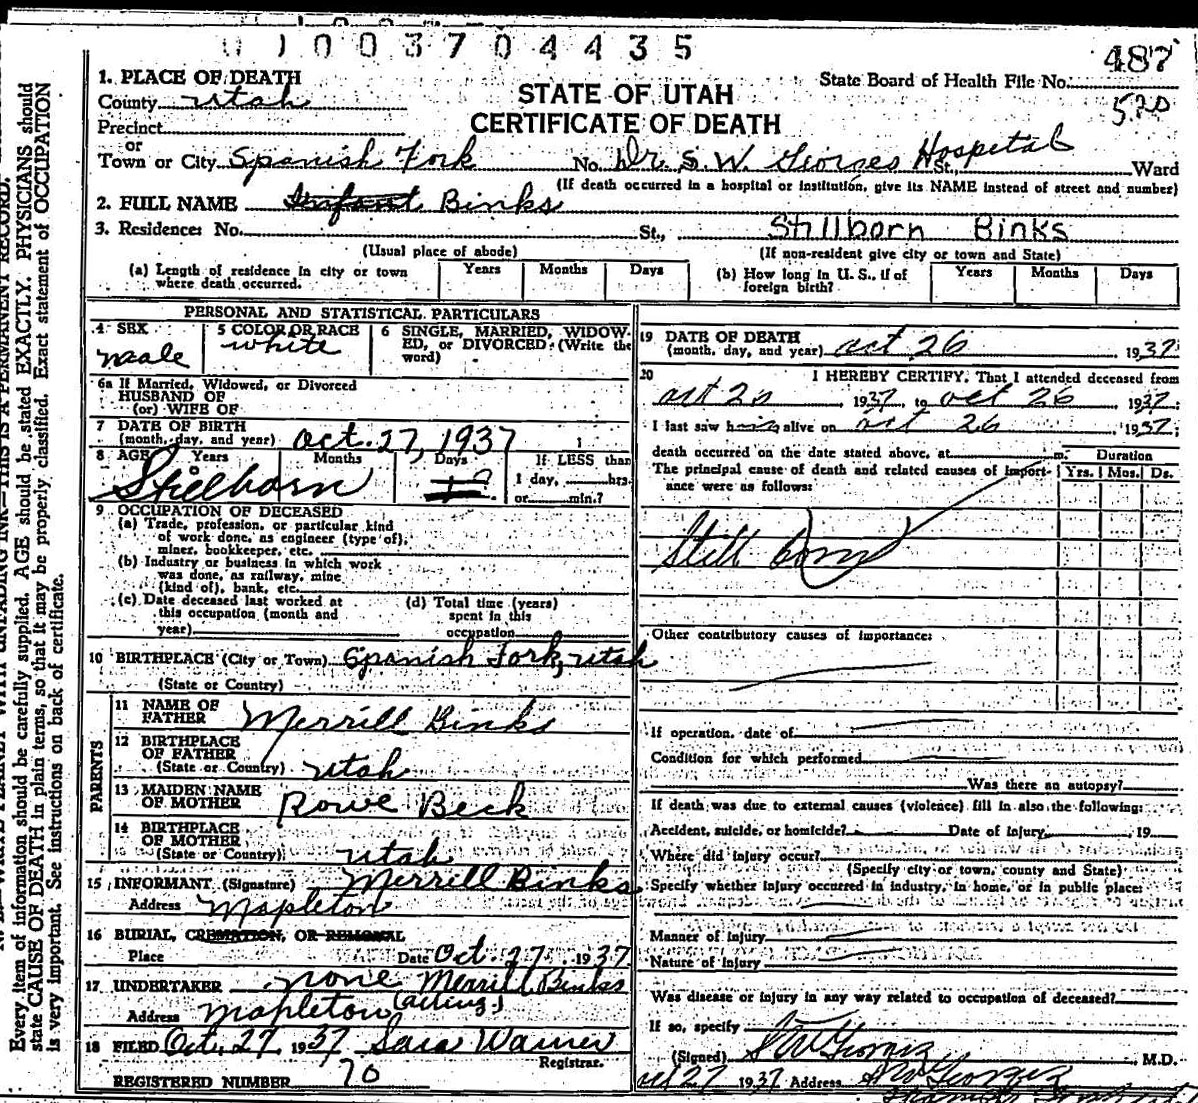 01003704435
487
520
1. PLACE OF DEATH
County Utah
Precinct
or
Town or City Spanish Fork No. Dr. S. W. Georges Hospital St., Ward
STATE OF UTAH
CERTIFICATE OF DEATH
State Board of Health File No.
(If death occurred in a hospital or institution, give its NAME instead of street and number)
2. FULL NAME Infant Binks
3. Residence: No. St., Stillborn Binks
(Usual place of abode) (If non-resident give city or town and State)
(a) Length of residence in city or town where death occurred. Years Months Days
(b) How long in U. S., if of foreign birth? Years Months Days
PERSONAL AND STATISTICAL PARTICULARS
4 SEX male
5 COLOR OR RACE white
6 SINGLE, MARRIED, WIDOWED, OR DIVORCED: (Write the word)
6a If Married, Widowed, or Divorced
HUSBAND OF
(or) WIFE OF
7 DATE OF BIRTH
(month, day, and year) Oct. 27, 1937
8 AGE Years Months Days If LESS than
1 day, hrs.
or min.?
Stillborn
9 OCCUPATION OF DECEASED
(a) Trade, profession, or particular kind
of work done, as engineer (type of),
miner, bookkeeper, etc.
(b) Industry or business in which work
was done, as railway, mine
(kind of), bank, etc.
(c) Date deceased last worked at
this occupation (month and
year)
(d) Total time (years)
spent in this
occupation
10 BIRTHPLACE (City or Town) Spanish Fork, Utah
(State or Country)
PARENTS
11 NAME OF
FATHER Merrill Binks
12 BIRTHPLACE
OF FATHER
(State or Country) Utah
13 MAIDEN NAME
OF MOTHER Rowe Beck
14 BIRTHPLACE
OF MOTHER
(State or Country) Utah
15 INFORMANT (Signature) Merrill Binks
Address Mapleton
16 BURIAL, CREMATION, OR REMOVAL
Place Date Oct. 27 1937
17 UNDERTAKER none Merrill Binks
Address Mapleton (acting)
18 FILED Oct. 27, 1937 Sara Warner
Registrar.
REGISTERED NUMBER 70
19 DATE OF DEATH
(month, day, and year) Oct 26, 1937
20 I HEREBY CERTIFY, That I attended deceased from
1937, to Oct 26 1937;
I last saw h alive on Oct 26, 1937;
death occurred on the date stated above, at m.
The principal cause of death and related causes of importance were as follows:
Duration
Yrs. Mos. Ds.
Still born
Other contributory causes of importance:
If operation, date of
Condition for which performed
Was there an autopsy?
If death was due to external causes (violence) fill in also the following:
Accident, suicide, or homicide? Date of injury, 19
Where did injury occur?
(Specify city or town, county and State)
Specify whether injury occurred in industry, in home, or in public place:
Manner of injury
Nature of injury
Was disease or injury in any way related to occupation of deceased?
If so, specify
(Signed) S W George, M.D.
Oct 27 1937 Address
Every item of information should be carefully supplied. AGE should be stated EXACTLY. PHYSICIANS should
state CAUSE OF DEATH in plain terms, so that it may be properly classified. Exact statement of OCCUPATION
is very important. See instructions on back of certificate.